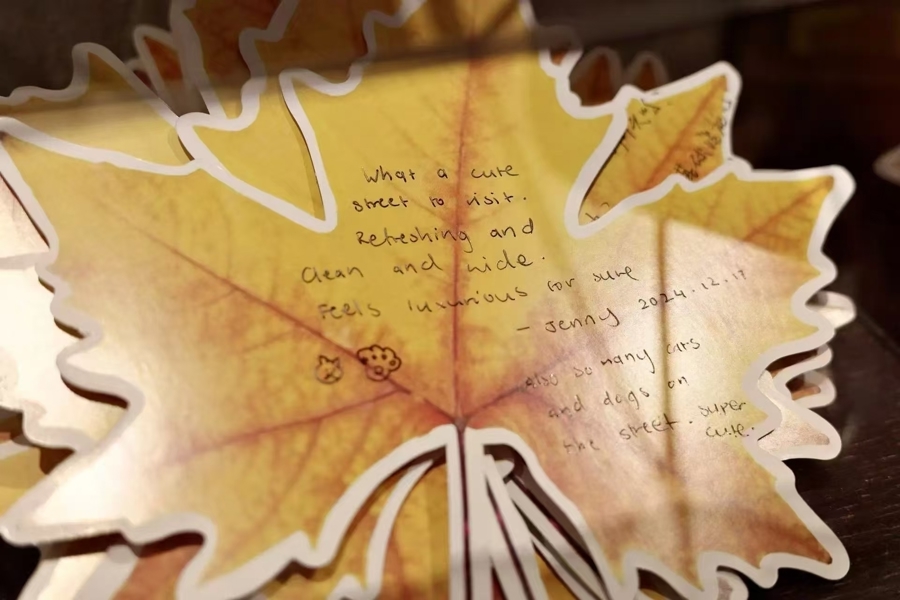 What a cute
street to visit.
Refreshing and
Clean and wide.
Feels luxurious for sure
- Jenny 2024.12.17
Also so many cars
and dogs on
the street. super
cute.